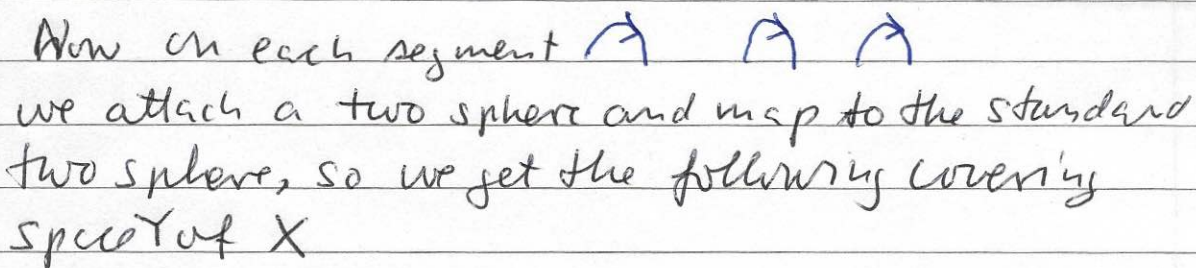 Now on each segment
we attach a two sphere and map to the standard
two sphere, so we get the following covering
space Y of X